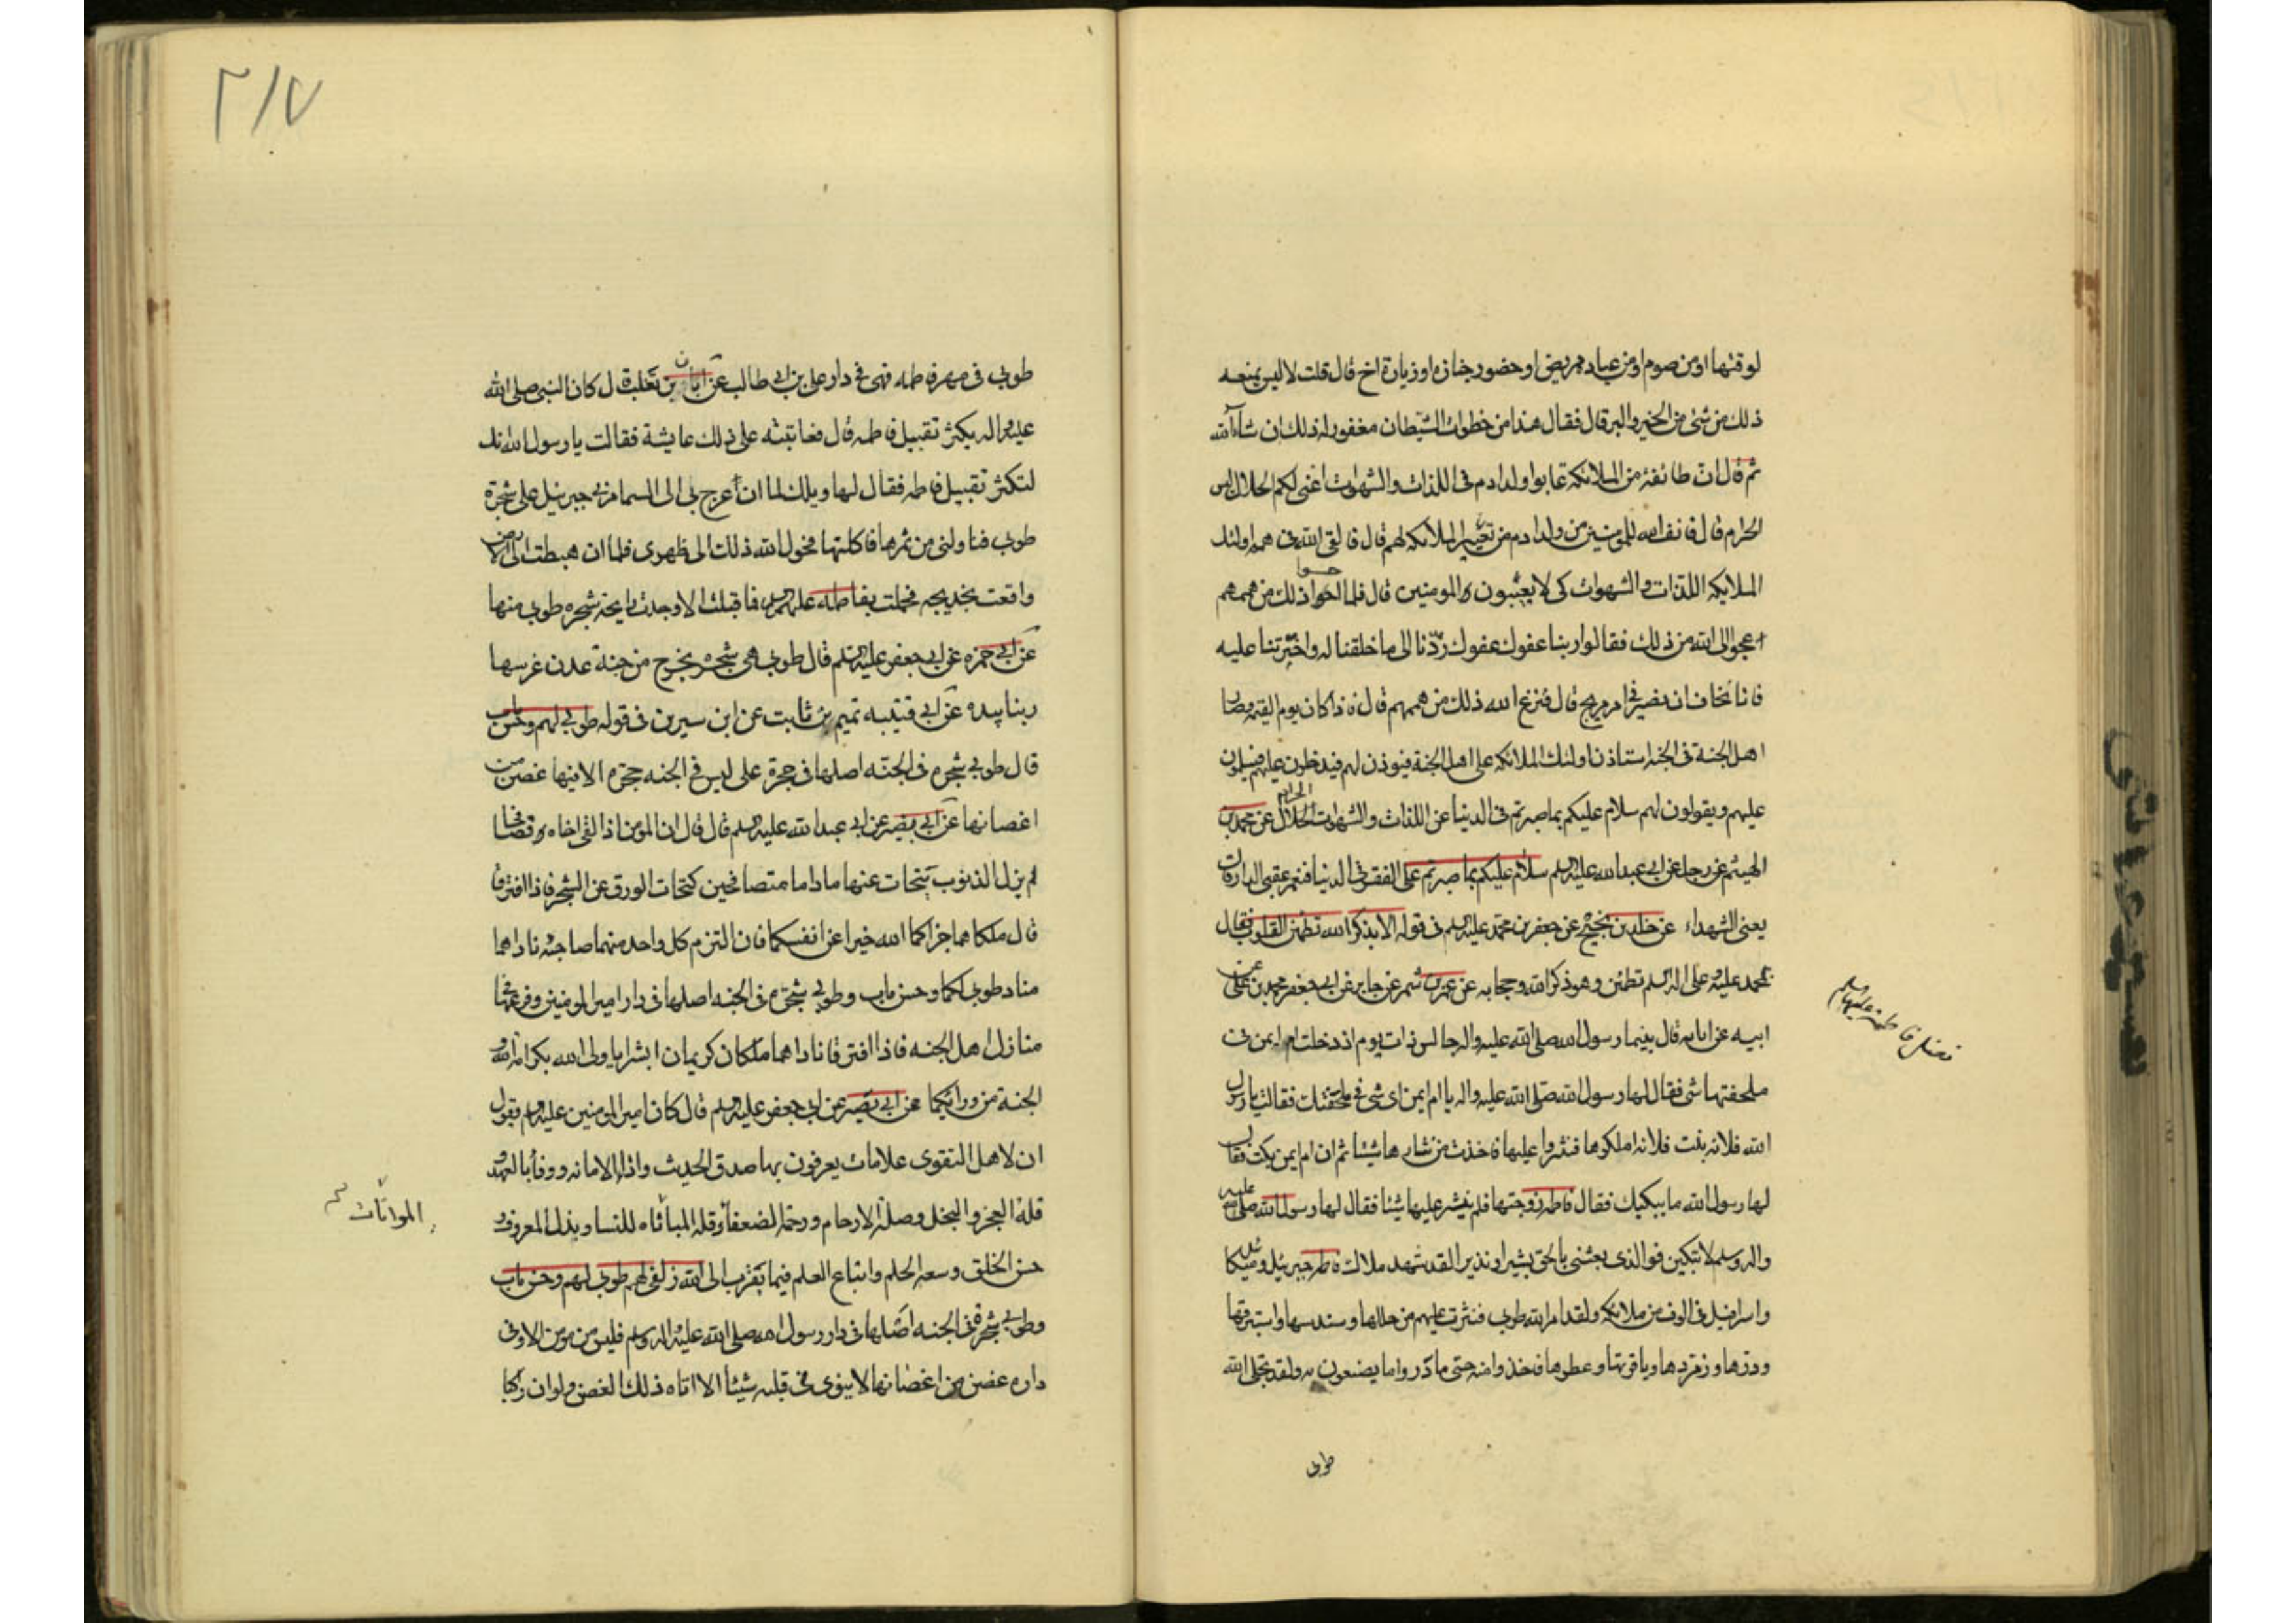 لوقتها او من صوم او من عياده مريض او حضور جنازه او زيارة اخ قال قلت لا ليس يمنعه
ذلك من شئ من الخير والبر قال فقال هذا من خطوات الشيطان مغفور له ذلك ان شاء الله
ثم قال ان طائفة من الملائكة عابوا ولد ادم فى اللذات والشهوات اعنى لكم الحلال ليس
الحرام قال فانف الله للمومنين من ولد ادم من تعيير الملائكه لهم قال فالقى الله فى همم اولئك
الملايكه اللذات والشهوات كى لا يعيبون المومنين قال فلما احسوا ذلك من هممهم
عجوا الى الله من ذلك فقالوا ربنا عفوك عفوك ردنا الى ما خلقنا له واخترتنا عليه
فانا نخاف ان نصير فى امر مريج قال فنزع الله ذلك من هممهم قال فاذا كان يوم القيمة وصار
اهل الجنة فى الجنه استاذن اولئك الملائكه على اهل الجنة فيوذن لهم فيدخلون عليهم فيسلمون
عليهم ويقولون لهم سلام عليكم بما صبرتم فى الدنيا عن اللذات والشهوات الحلال عن محمد بن
الهيثم عن رجل عن ابى عبد الله عليه السلم سلام عليكم بما صبرتم على الفقر فى الدنيا فنعم عقبى الدار قال
يعنى الشهداء عن خالد بن نجيح عن جعفر بن محمد عليه السلم فى قوله الا بذكر الله تطمئن القلوب فقال
بمحمد عليه وعلى اله السلم تطمئن وهو ذكر الله وحجابه عن عمرو بن شمر عن جابر عن ابى جعفر محمد بن على عن
ابيه عن ابايه قال بينما رسول الله صلى الله عليه واله جالس ذات يوم اذ دخلت ام ايمن فى
ملحفتها شى فقال لها رسول الله صلى الله عليه واله يا ام ايمن اى شى فى ملحفتك فقالت يا رسول
الله فلانه بنت فلانه املكوها فنثروا عليها فاخذت من نثارها شيئا ثم ان ام ايمن بكت فقال
لها رسول الله ما يبكيك فقال فاطمه زوجتها فلم ينثر عليها شيئا فقال لها رسول الله صلى الله عليه
واله وسلم لا تبكين فو الذى بعثنى بالحق بشيرا ونذيرا لقد شهد ملاك فاطمه جبرئيل وميكائيل
واسرافيل فى الوف من ملائكه ولقد امر الله طوبى فنثرت عليهم من حللها وسندسها واستبرقها
ودرها وزمردها وياقوتها وعطرها فاخذوا منه حتى ما دروا ما يصنعون به ولقد نحل الله
طوبى
فضل فاطمة عليها السلم
٢١٧
طوبى فى مهر فاطمه فهى فى دار على بن ابى طالب عن ابان بن تغلب قال كان النبى صلى الله
عليه واله يكثر تقبيل فاطمه قال فعاتبته على ذلك عايشة فقالت يا رسول الله انك
لتكثر تقبيل فاطمه فقال لها ويلك لما ان عرج بى الى السما مر بى جبرئيل على شجرة
طوبى فناولنى من ثمرها فاكلتها فحول الله ذلك الى ظهرى فلما ان هبطت الى الارض
واقعت بخديجه فحملت بفاطمه عليها السلم فما قبلتها الا وجدت رايحة شجره طوبى منها
عن ابى حمزه عن ابى جعفر عليه السلم قال طوبى هى شجره يخرج من جنة عدن غرسها
ربنا بيده عن ابى قتيبه تميم بن ثابت عن ابن سيرين فى قوله طوبى لهم وحسن ماب
قال طوبى شجره فى الجنه اصلها فى حجرة على ليس فى الجنه حجره الا فيها غصن من
اغصانها عن ابى بصير عن ابى عبد الله عليه السلم قال قال ان المومن اذا لقى اخاه وتصافحا
لم يزل الذنوب يتحات عنهما ماداما متصافحين كتحات الورق عن الشجر فاذا افترقا
قال ملكاهما جزاكما الله خيرا عن انفسكما فان التزم كل واحد منهما صاحبه ناداهما
مناد طوبى لكما وحسن ماب وطوبى شجره فى الجنه اصلها فى دار امير المومنين وفرعها فى
منازل اهل الجنه فاذا افترقا ناداهما ملكان كريمان ابشرا يا ولى الله بكرامه الله و
الجنة من ورايكما عن ابى بصير عن ابى جعفر عليه السلم قال كان امير المومنين عليه السلم يقول
ان لاهل التقوى علامات يعرفون بها صدق الحديث وادا الامانه ووفا بالعهد و
قلة العجز والبخل وصلة الارحام ورحمة الضعفا وقلة المباتاه للنسا وبذل المعروف و
حسن الخلق وسعه الحلم واتباع العلم فيما يقرب الى الله زلفى لهم طوبى لهم وحسن ماب
وطوبى شجره فى الجنه اصلها فى دار رسول الله صلى الله عليه واله وسلم فليس من مومن الا وفى
داره غصن من اغصانها لا ينوى فى قلبه شيئا الا اتاه ذلك الغصن ولو ان راكبا
المواتات
تفسير عياشى